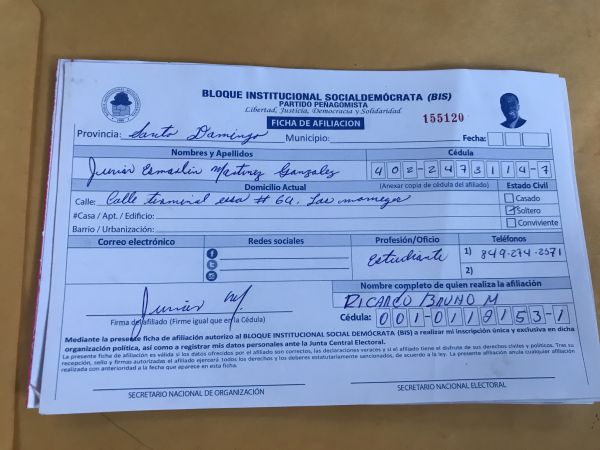 BLOQUE INSTITUCIONAL SOCIALDEMÓCRATA (BIS)
PARTIDO PEÑAGOMISTA
Libertad, Justicia, Democracia y Solidaridad
FICHA DE AFILIACION
155120
Provincia: Santo Domingo Municipio: Fecha:
Nombres y Apellidos Cédula
Junior Esmarlin Martinez Gonzalez 402-2473114-7
Domicilio Actual (Anexar copia de cédula del afiliado) Estado Civil
Calle: Calle # 64, Las Casado
#Casa / Apt. / Edificio: Soltero
Barrio / Urbanización: Conviviente
Correo electrónico Redes sociales Profesión/Oficio Teléfonos
Estudiante 1) 849-274-2571
2)
Nombre completo de quien realiza la afiliación
Junior M. RICARDO BRUNO M
Firma del afiliado (Firme igual que en la Cédula) Cédula: 001-0118153-1
Mediante la presente ficha de afiliación autorizo al BLOQUE INSTITUCIONAL SOCIAL DEMÓCRATA (BIS) a realizar mi inscripción única y exclusiva en dicha
organización política, así como a registrar mis datos personales ante la Junta Central Electoral.
La presente ficha de afiliación es válida si los datos ofrecidos por el afiliado son correctos, las declaraciones veraces y si el afiliado tiene el disfrute de sus derechos civiles y políticos. Tras su
recepción, sello y firmas autorizadas el afiliado ejercerá todos los derechos y los deberes estatutariamente sancionados, de acuerdo a la ley. La presente afiliación anula cualquier afiliación
realizada con anterioridad a la fecha que aparece en esta ficha.
SECRETARIO NACIONAL DE ORGANIZACIÓN SECRETARIO NACIONAL ELECTORAL